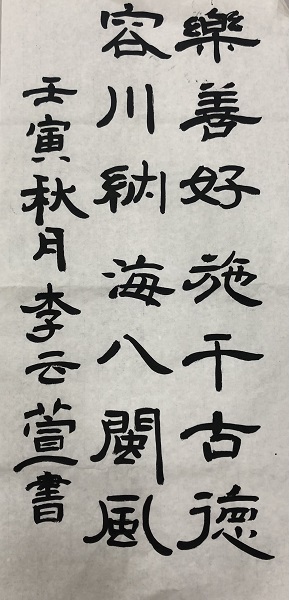 樂善好施千古德
容川納海八閩風
壬寅秋月李云萱書